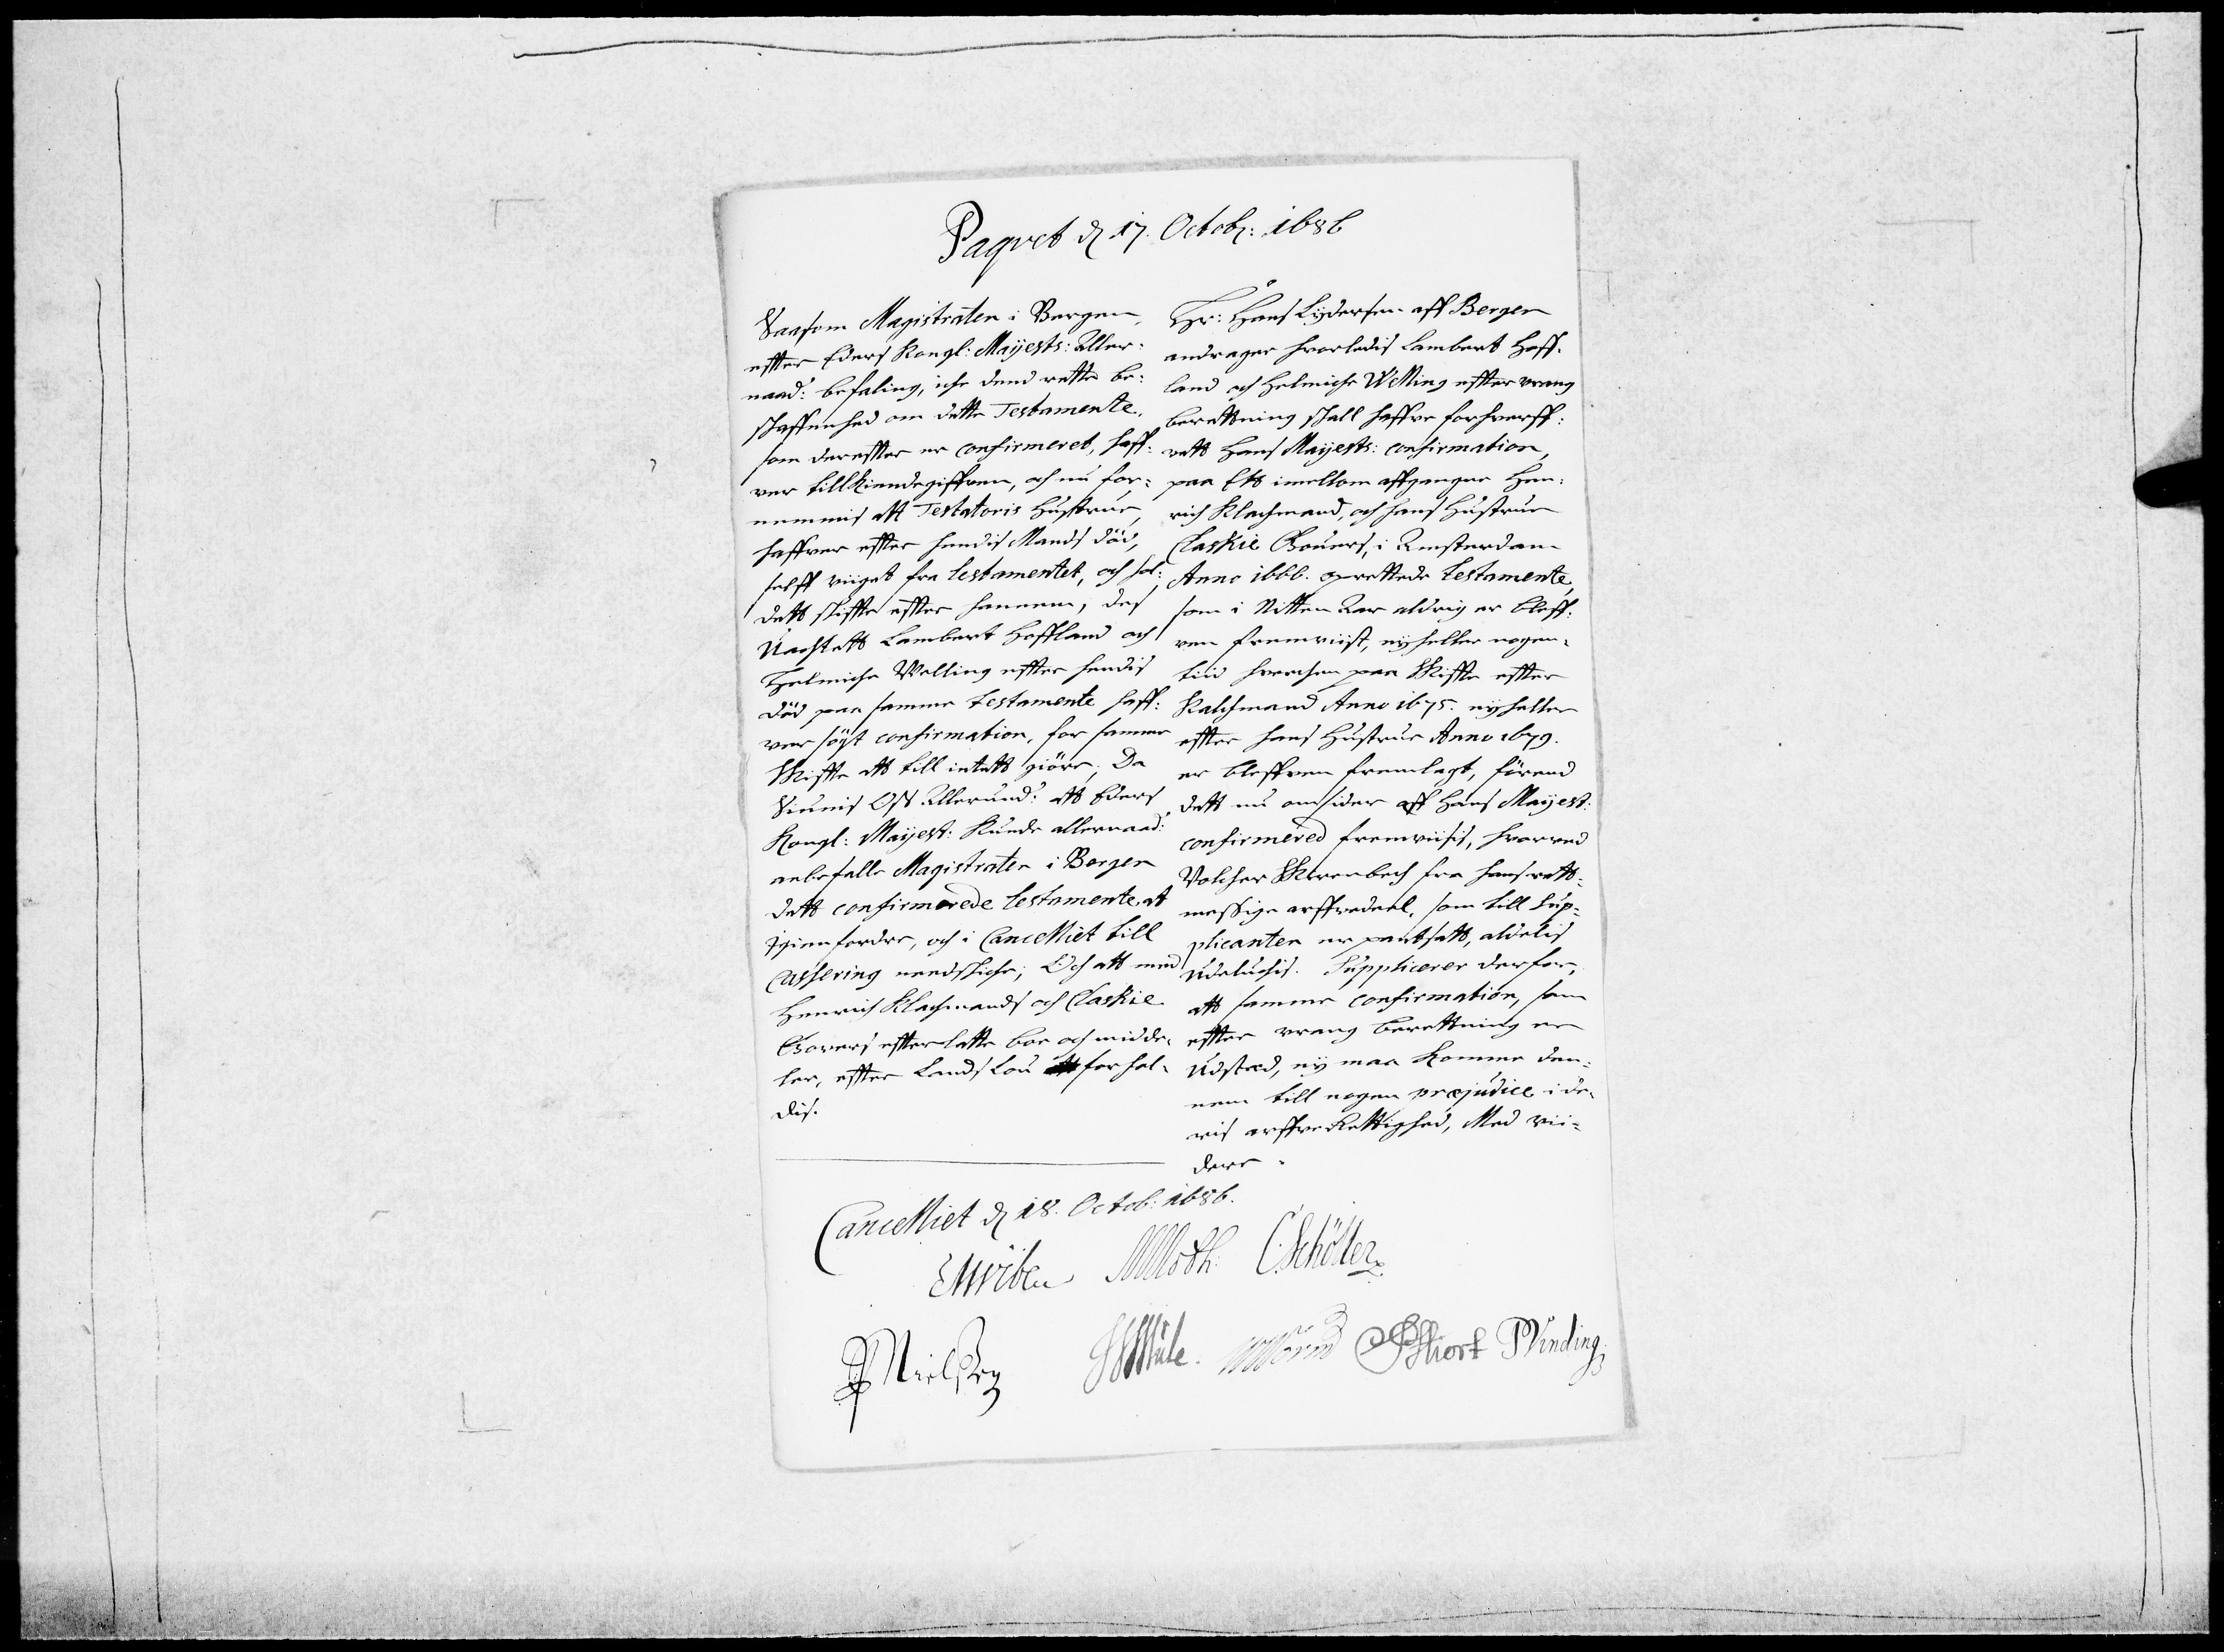 Paqvet d 17. Octobr: 1686
Saasom Magistraten i Bergen,
effter Eders Kongl: Mayests: Aller-
naad: befaling, iche dend rette be-
schaffenhed om dette Testamente,
som dereffter er confirmeret, haff-
ver tillkiendegiffven, och nu for-
nemmis att Testatoris Hustrue,
haffver effter hendis Mands död,
selff viiget fra testamentet, och hol-
dett skiffte effter hannem, des
Uachtett Lambert Hoffland och
Helmiche Welling effter hendis
död paa samme testamente haff-
ver sögt confirmation, for samme
Skiffte att till intett giöre; Da
Siunis Oss Allerund: att Eders
Kongl: Mayest: Kunde allernaad:
anbefalle Magistraten i Bergen
dett confirmerede testamente, at
igien fordre, och i Cancelliet till
Cassering needskiche; Och att med
Henrich Klachmands och Claskie
Govers effterlatte boe och midde-
ler, effter Lands Lou forhol-
dis.
Hr: Hans Lydersen aff Bergen
andrager hvorledis Lambert Hoff-
land och Helmiche Welling effter vrang
berettning skall haffve forhverff-
vett Hans Mayests: confirmation,
paa Ett imellom affgangne Hen-
rich Klachmand, och hans Hustrue
Claskie Govers, i Amsterdam
Anno 1666. oprettede testamente,
som i Nitten Aar aldrig er bleff-
ven fremviist, ey heller nogen-
tiid hverchen paa Skiffte effter
Kalchmand Anno 1675. ey heller
effter hans Hustrue Anno 1679.
er bleffven fremlagt, förend
dett nu omsider aff Hans Mayest:
confirmered fremviisis, hvorved
Volcher Skrenbech fra hans rett-
messige arffvedeel, som till Sup-
plicanten er pantsatt, aldelis
Udeluchis. Supplicerer derfor,
att samme confirmation, som
effter vrang berettning er
Udsted, ey maa komme den-
nem till nogen præjudice i de-
ris arffve Rettighed, Med vii-
dere.
Cancelliet d 18. Octob: 1686.
MMoth CSchöller
PNielsen HStute WWorm Short PVinding